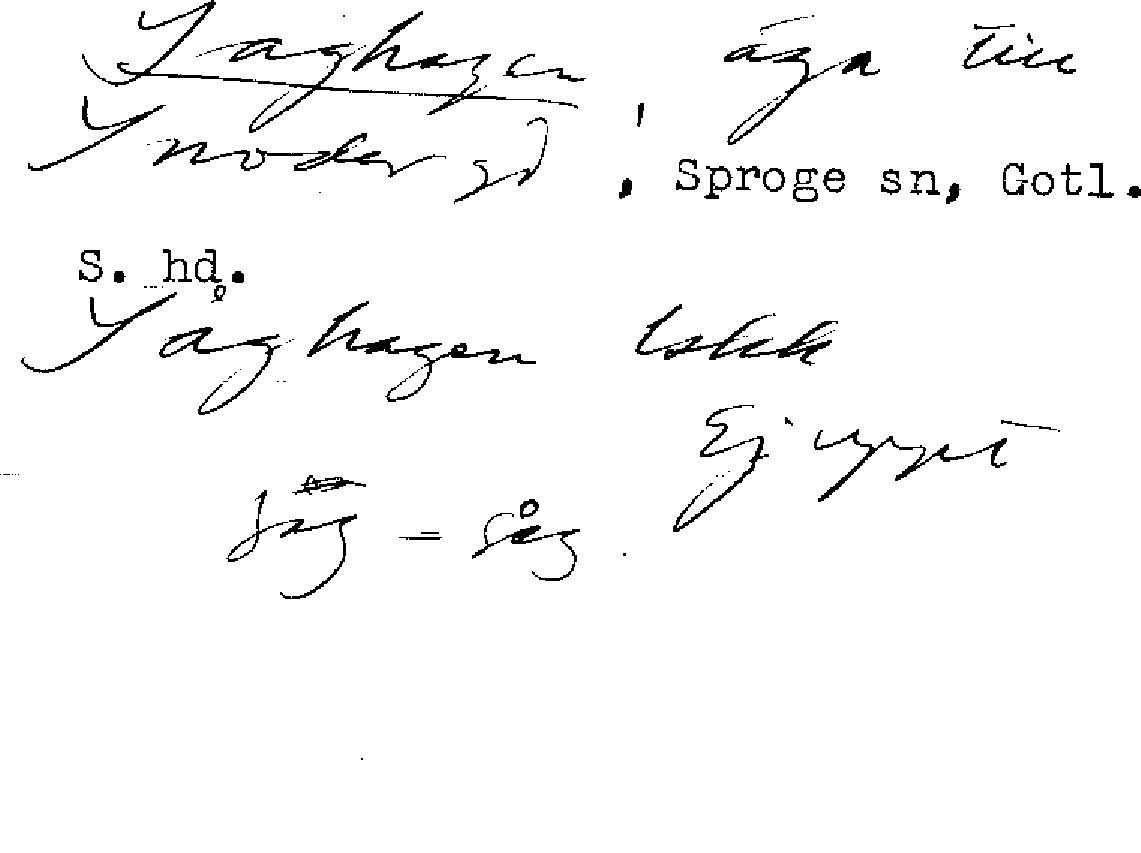 Saghagen äga till
Snoder gd , Sproge sn, Gotl.
S. hd.
Såghagen
Ej uppt
sag = såg.